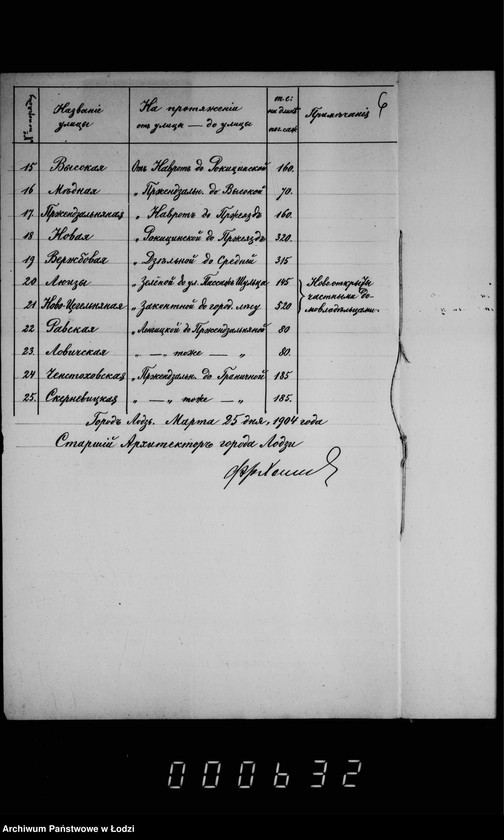 6
№ по порядку | Названіе улицы | На протяженіи отъ улицы — до улицы | пог. саж. | Примѣчанія
15 Высокая Отъ Навротъ до Рокицинской 160.
16 Мѣдная " Пржендзальн. до Высокой 70.
17. Пржендзальняная " Навротъ до Проѣздъ 160.
18 Новая " Рокицинской до Проѣздъ 320.
19 Вержбовая " Дѣльной до Средней 315
20 Люизы " Зелёной до ул. Пассажъ Шульца 145
21. Ново-Цегельняная " Законтной до город. лѣсу 520
Новооткрыты
частными до-
мовладѣльцами.
22 Равская " до Пржендзальняной 80
23. Ловичская " — " — тоже — " 80.
24 Ченстоховская " Пржендзальн. до Граничной 185
25. Скерневицкая " — " тоже — " 185.
Городъ Лодзь. Марта 25 дня, 1904 года
Старшій Архитекторъ города Лодзи
000632
Archiwum Państwowe w Łodzi